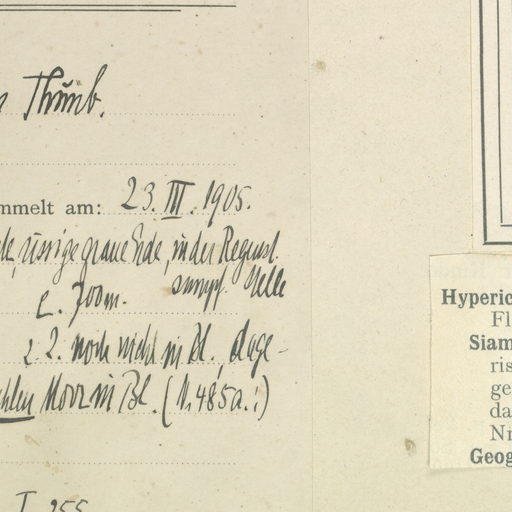 Thunb.
mmelt am: 23. III. 1905.
rissige graue Erde, in der Regenzt.
sumpf. Stelle
c. 700m.
z. Z. noch nicht in Bl., dage-
Moor in Bl. (N. 485a.)
I 255
Hyperic
Fl
Siam
ris
ge
da
Nr
Geog